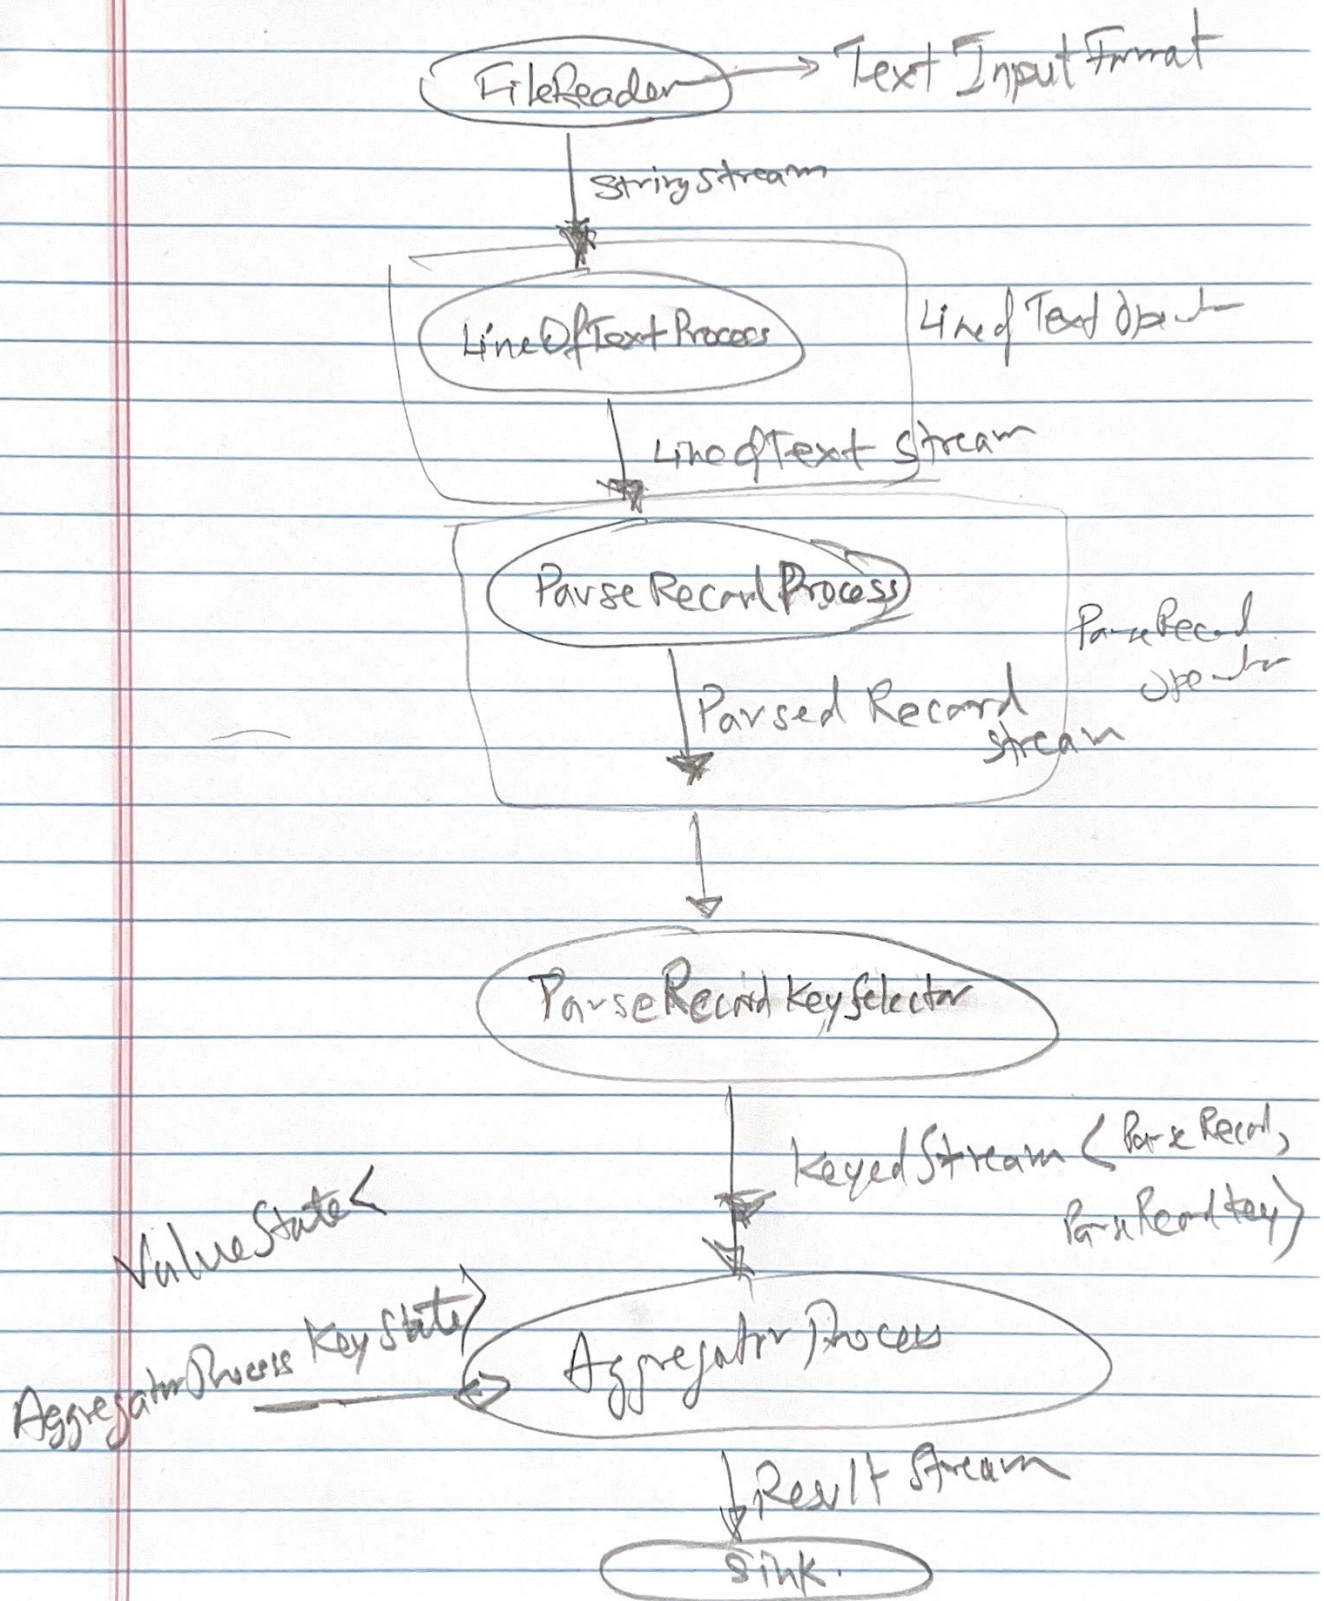 FileReader
Text Input Format
String Stream
LineOfTextProcess
Line of Text Operator
LineOfText Stream
ParseRecordProcess
ParseRecord
Operator
Parsed Record
Stream
ParseRecordKeySelector
KeyedStream <ParseRecord,
ParseRecordKey>
ValueState<
AggregatorProcess KeyState>
AggregatorProcess
Result Stream
Sink.